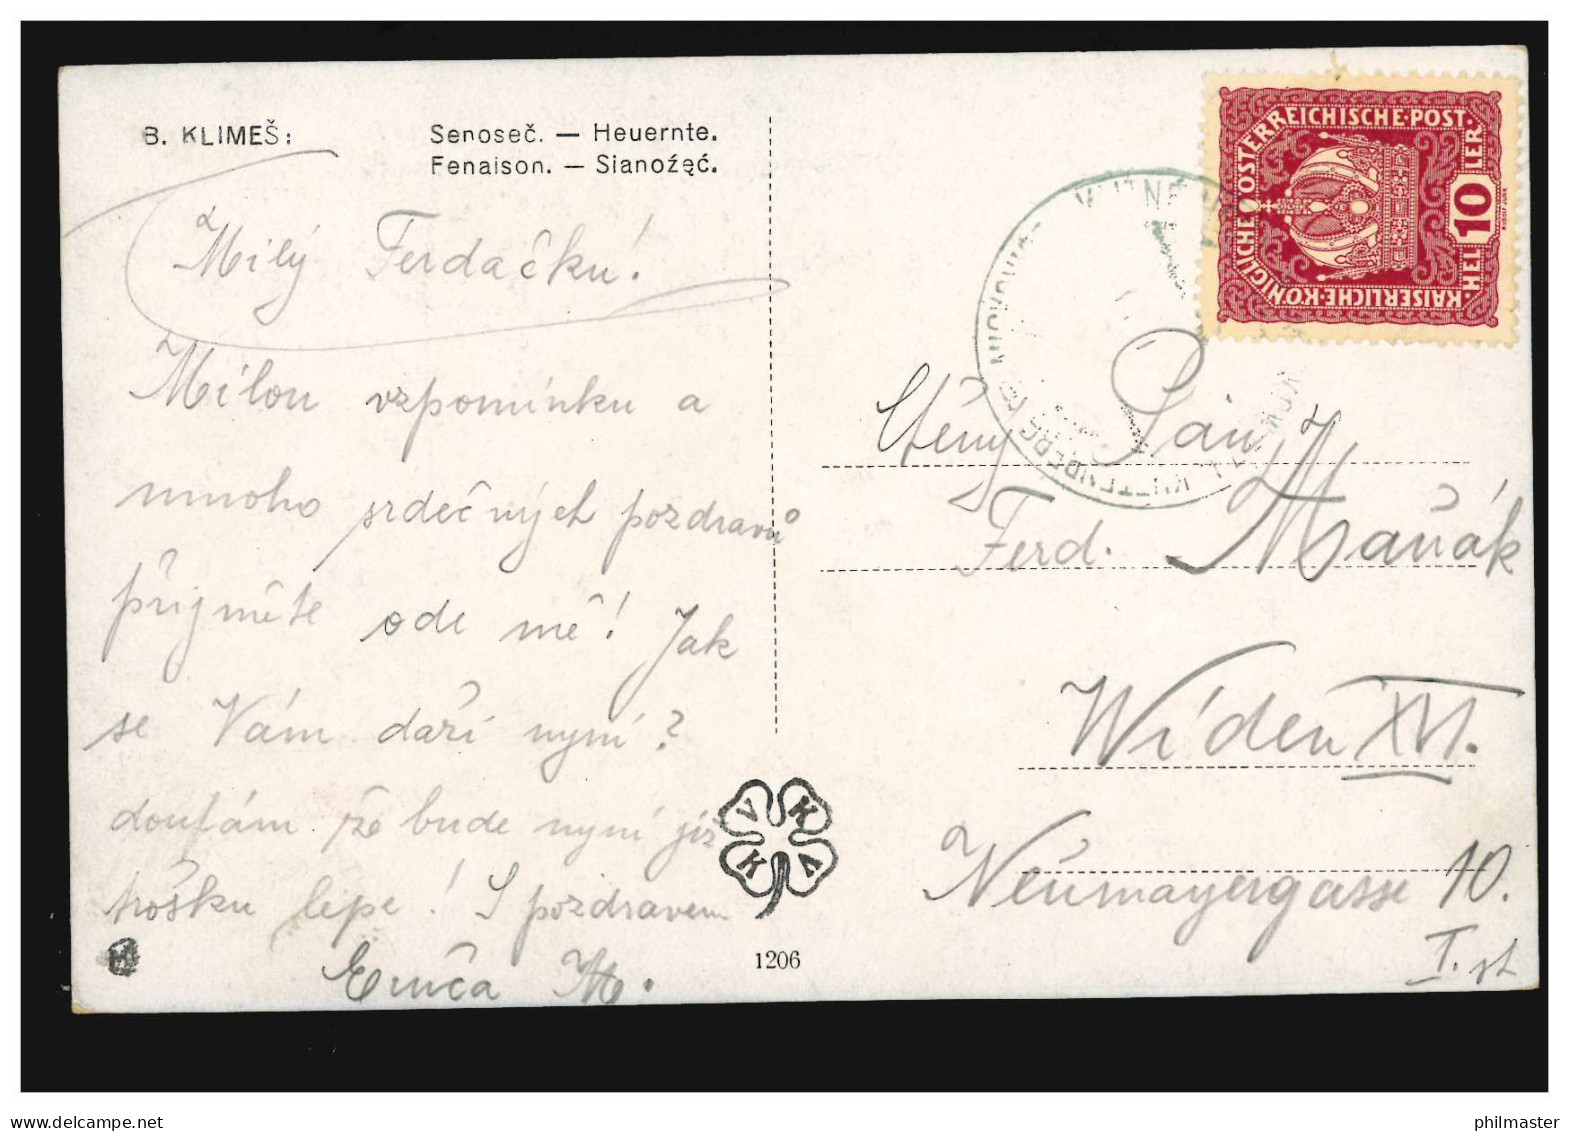 B. KLIMEŠ:
Senoseč. — Heuernte.
Fenaison. — Sianożęć.
Milý Ferdáčku!
Milou vzpomínku a
mnoho srdečných pozdravů
přijměte ode mě! Jak
se Vám daří nyní?
doufám že bude nyní již
trošku lépe! S pozdravem
M.
V K
K V
1206
KAISERLICHE·KÖNIGLICHE ÖSTERREICHISCHE·POST·
10 HELLER
RUDOLF JUNK
Ctěný Pán,
Ferd. Maňák
Wíden XVI.
Neumayergasse 10.
I. st
delcampe.net
philmaster